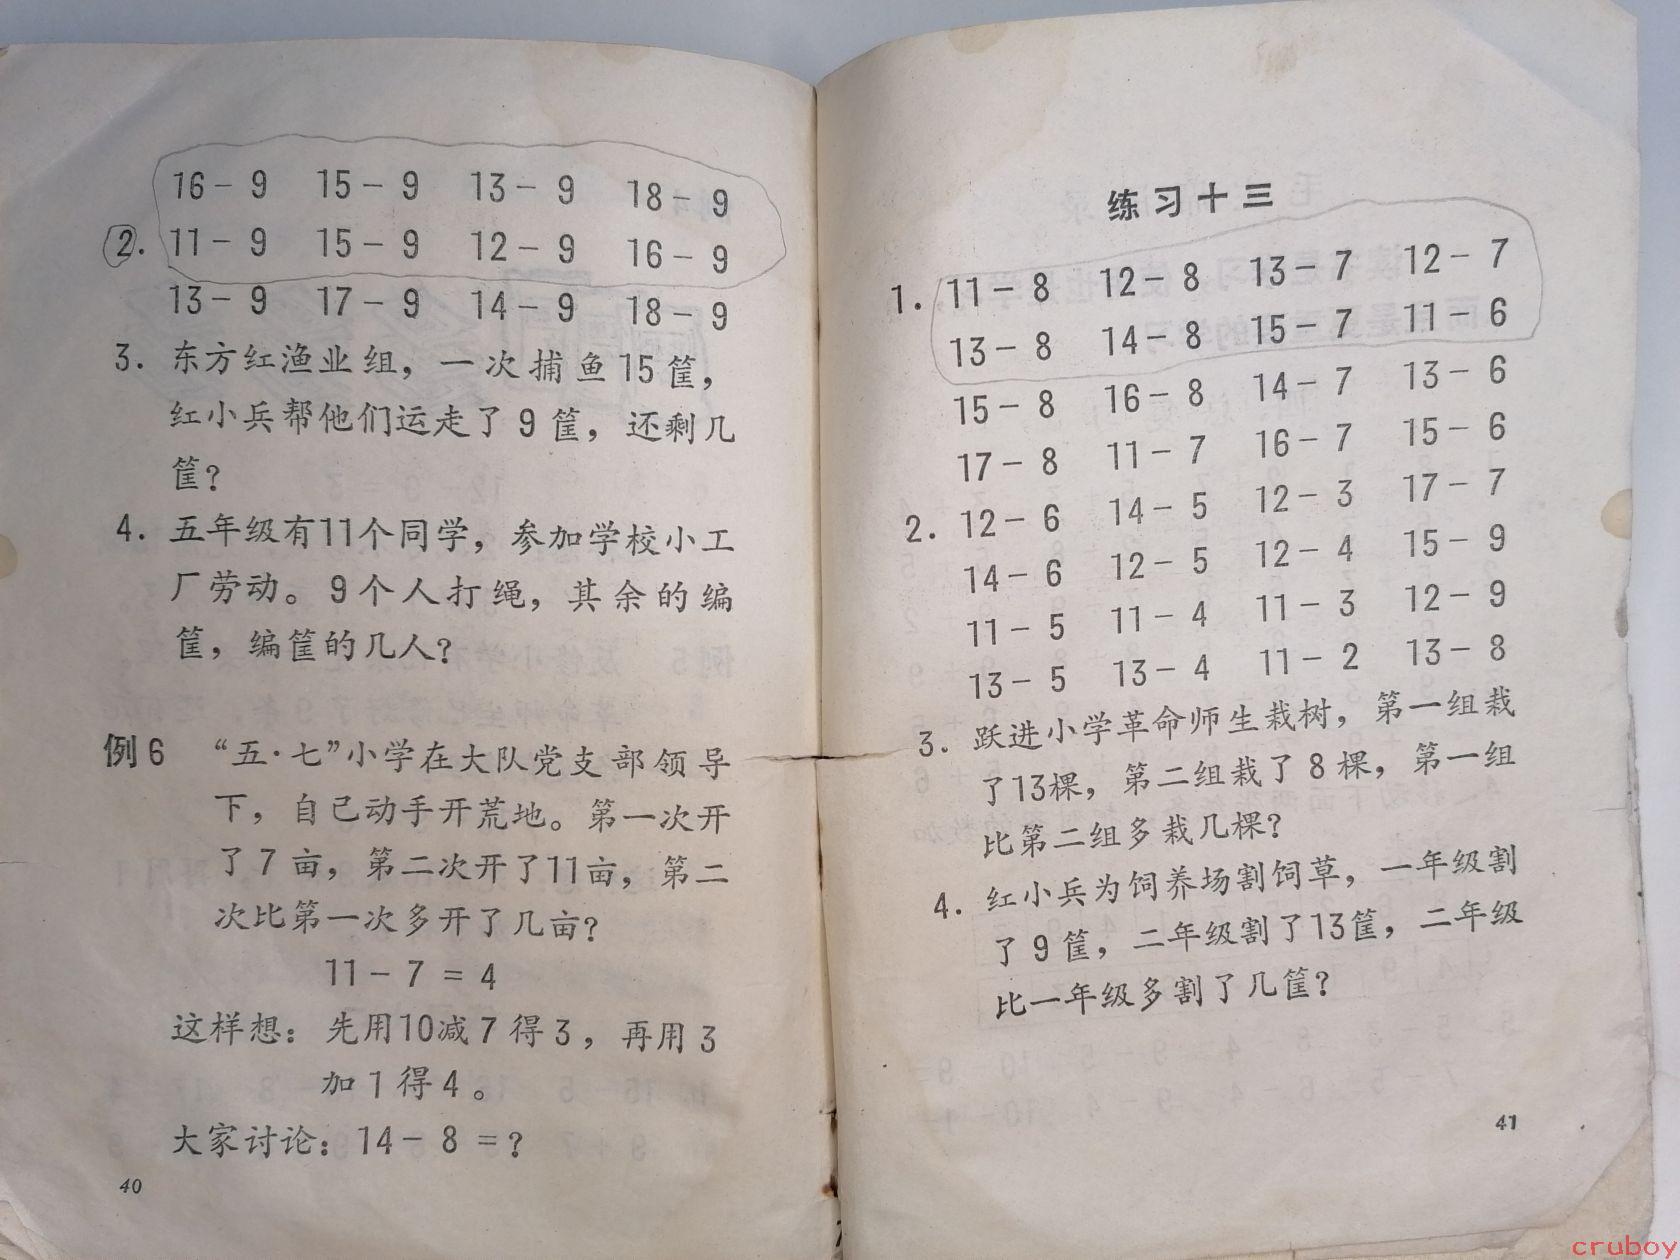 16－9 15－9 13－9 18－9
2. 11－9 15－9 12－9 16－9
13－9 17－9 14－9 18－9
3. 东方红渔业组，一次捕鱼15筐，
红小兵帮他们运走了9筐，还剩几
筐？
4. 五年级有11个同学，参加学校小工
厂劳动。9个人打绳，其余的编
筐，编筐的几人？
例6 “五·七”小学在大队党支部领导
下，自己动手开荒地。第一次开
了7亩，第二次开了11亩，第二
次比第一次多开了几亩？
11－7＝4
这样想：先用10减7得3，再用3
加1得4。
大家讨论：14－8＝？
40
练习十三
1. 11－8 12－8 13－7 12－7
13－8 14－8 15－7 11－6
15－8 16－8 14－7 13－6
17－8 11－7 16－7 15－6
2. 12－6 14－5 12－3 17－7
14－6 12－5 12－4 15－9
11－5 11－4 11－3 12－9
13－5 13－4 11－2 13－8
3. 跃进小学革命师生栽树，第一组栽
了13棵，第二组栽了8棵，第一组
比第二组多栽几棵？
4. 红小兵为饲养场割饲草，一年级割
了9筐，二年级割了13筐，二年级
比一年级多割了几筐？
41
cruboy